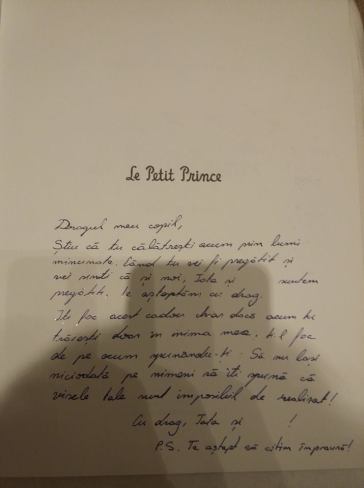 Le Petit Prince
Dragul meu copil,
Știu că tu călătrești acum prin lumi
minunate. Când tu vei fi pregătit și
vei simți că și noi, Tata și suntem
pregătiți. Te așteptăm cu drag.
Îți fac acest cadou chiar dacă acum tu
trăiești doar în inima mea. Ți-l fac
de pe acum spunându-ți: Să nu lași
niciodată pe nimeni să îți spună că
visele tale sunt imposibil de realizat!
Cu drag, Tata și !
P.S. Te aștept să citim împreună!